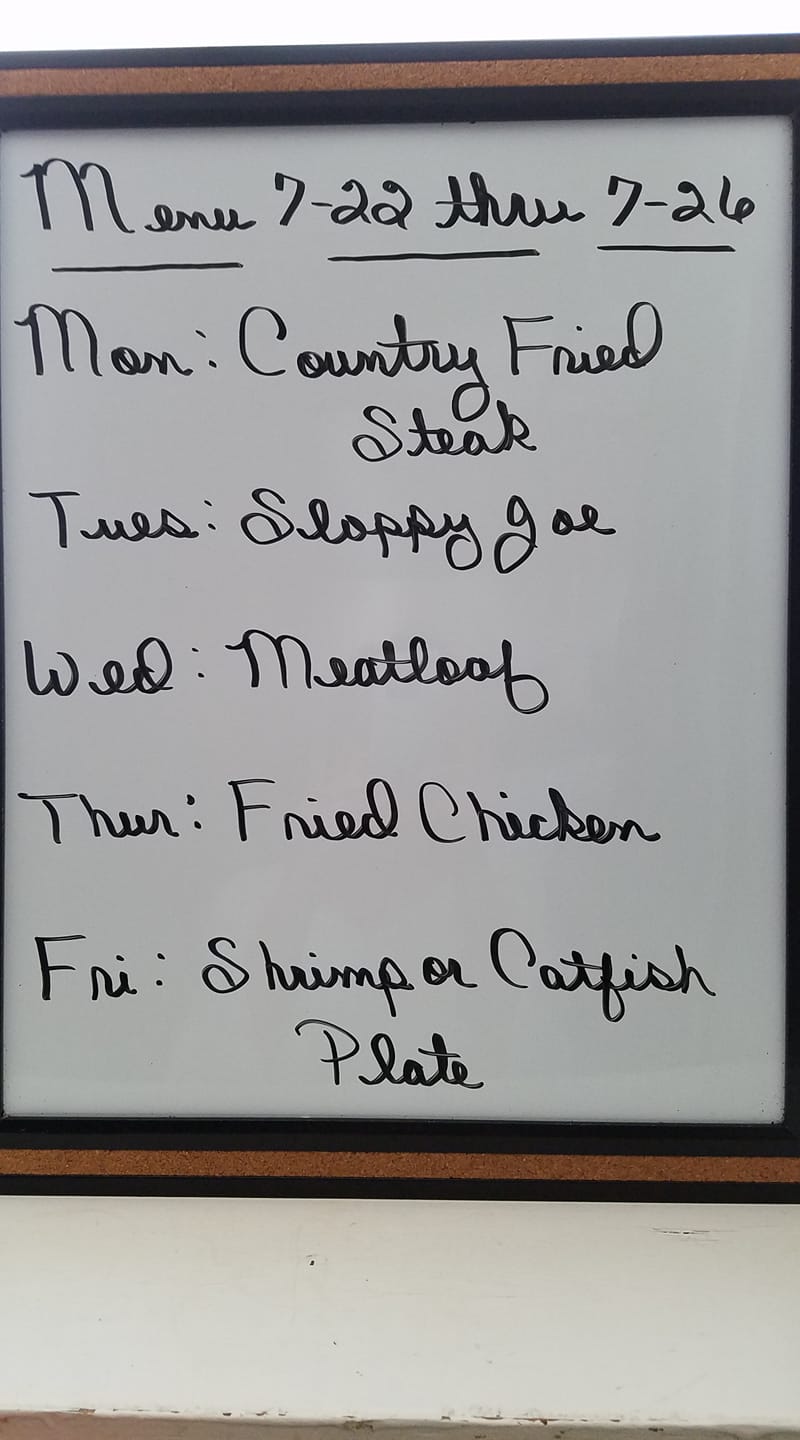 Menu 7-22 thru 7-26
Mon: Country Fried
Steak
Tues: Sloppy Joe
Wed: Meatloaf
Thur: Fried Chicken
Fri: Shrimp or Catfish
Plate